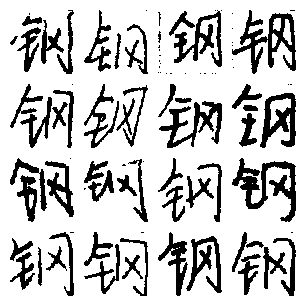 钢钢钢钢
钢钢钢钢
钢钢钢钢
钢钢钢钢